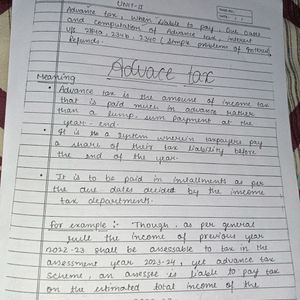 UNIT-II
Advance tax, when liable to pay, due dates
and computation of Advance tax, interest
u/s 234a, 234b, 234c (simple problems of interest)
Refunds.
Advace tax
Meaning
• Advance tax is the amount of income tax
that is paid much in advance rather
than a lump sum payment at the
year end.
• It is a system wherein taxpayers pay
a share of their tax liability before
the end of the year.
• It is to be paid in installments as per
the due dates decided by the income
tax departments.
For example :- Though, as per general
rule the income of previous year
2022-23 shall be assessable to tax in the
assessment year 2023-24, yet advance tax
scheme, an assessee is liable to pay tax
on the estimated total income of the